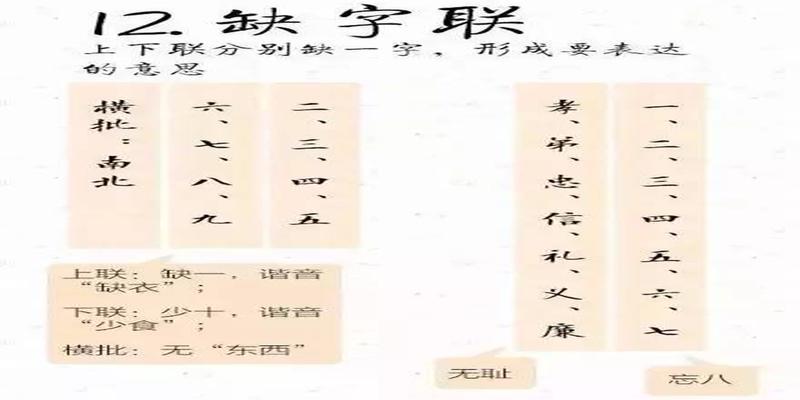 12.缺字联
上下联分别缺一字，形成要表达
的意思
二、三、四、五
六、七、八、九
横批：南北
上联：缺一，谐音
“缺衣”；
下联：少十，谐音
“少食”；
横批：无“东西”
一、二、三、四、五、六、七
孝、弟、忠、信、礼、义、廉
无耻
忘八